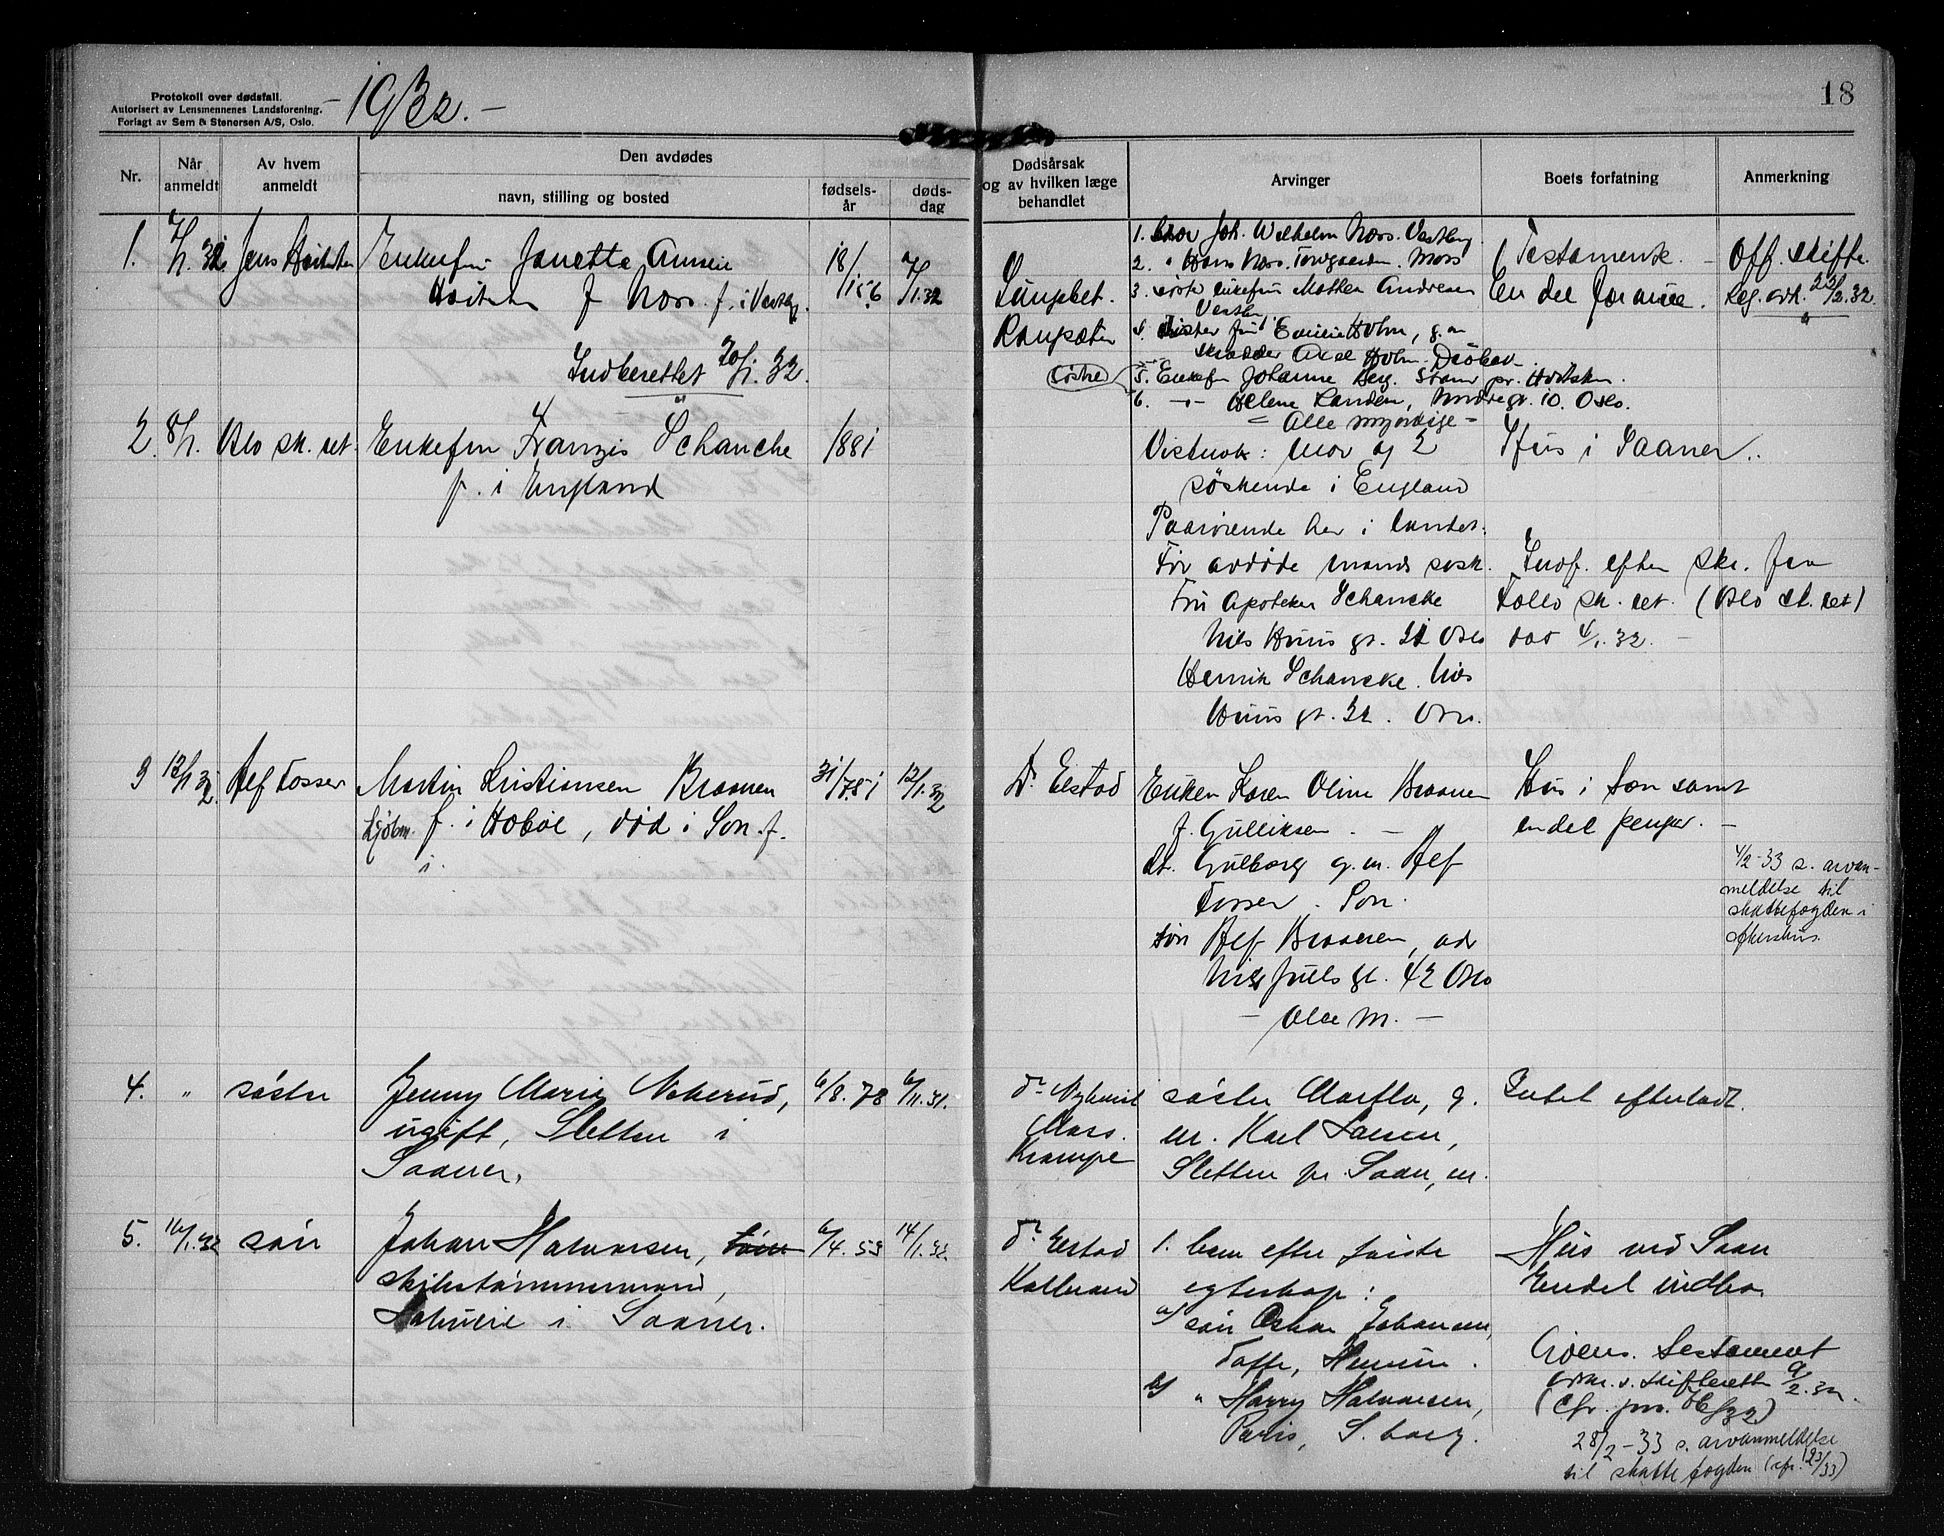 Protokoll over dødsfall.
Autorisert av Lensmennenes Landsforening.
Forlagt av Sem & Stenersen A/S, Oslo.
- 1932. -
18
Nr.
Når anmeldt
Av hvem anmeldt
Den avdødes
navn, stilling og bosted
fødselsår
dødsdag
Dødsårsak og av hvilken læge behandlet
Arvinger
Boets forfatning
Anmerkning
1.
7/1. 32
Jens
Enkefru Janetta
f. i Vestby.
Indberettet 20/1. 32.
18/1 56
7/1.32
1. Bror Joh. Wilhelm Mors. Vestby
2. " Hans Mors. Moss
3. enkefru Mathea Andresen
Vestby
4. Søster fru Emilie Holm, g. m
Axel Holm. Drøbak
(Søstre)
5. Enkefru Johanne Berg. pr. Hvitsten.
6. - " - Helene Landen, gt. 10. Oslo.
= Alle myndige =
Testamente. -
En del formue.
Off. skifte.
22/2.32.
2.
8/1.
sk. ret.
Enkefru Franzis Schanche
f. i England
1881
mor og 2
søskende i England
Paarørende her i landet:
For avdøde mands søsk.
Fru Apoteker Schancke
Nils Huus gt. 21 Oslo
Henrik Schancke. Nils
Huus gt. 21. Oslo.
Hus i Saaner.
Indf. efter skr. fra
Follo sk. ret.
4/1.32. -
3
12/1 32.
Alf Fosser
Martin Kristiansen Braaen
f. i Hobøl, død i Son. f.
i.
31/7.51
12/1.32
Dr. Eistad
Enken Karen Oline Braaen
f. Gulliksen. -
dt. Gulborg g. m. Alf
Fosser. Son.
søn Alf Braaen, adr
Nils Juels gt. 42 Oslo
- Alle m. -
Hus i Son samt
endel penger. -
4/2-33 s. arvan-
meldelse til
skattefogden i
Akershus.
4.
"
søster
Jenny Marie
ugift, Sletten i
Saaner.
6/8. 78
6/11.31.
dr
Moss.
Krampe
søster Martha, g.
m. Karl Larsen,
Sletten pr. Saan, m.
Intet efterladt.
5.
16/1.32
søn
Johan Halvorsen,
skibstømmermand,
i Saaner.
6/4.53
14/1.32
dr Eistad
Koldbrand
1. barn efter første
egteskap:
a/ søn Oskar Johansen,
Tofte, Hurum.
b/ " Harry Halvorsen,
Paris, S. borg.
Hus ved Saan
Endel indbo
Testament
9/2.32.
28/2-33 s. arvanmeldelse
til skattefogden (cfr. 123/33)